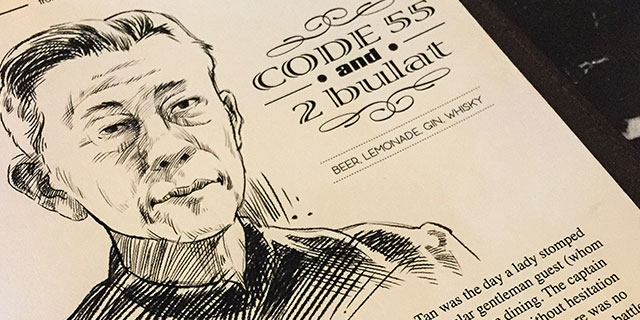 CODE 55
• and •
2 bulat
BEER, LEMONADE, GIN, WHISKY
Tan was the day a lady stomped
gentleman guest (whom
dining. The captain
without hesitation
was no